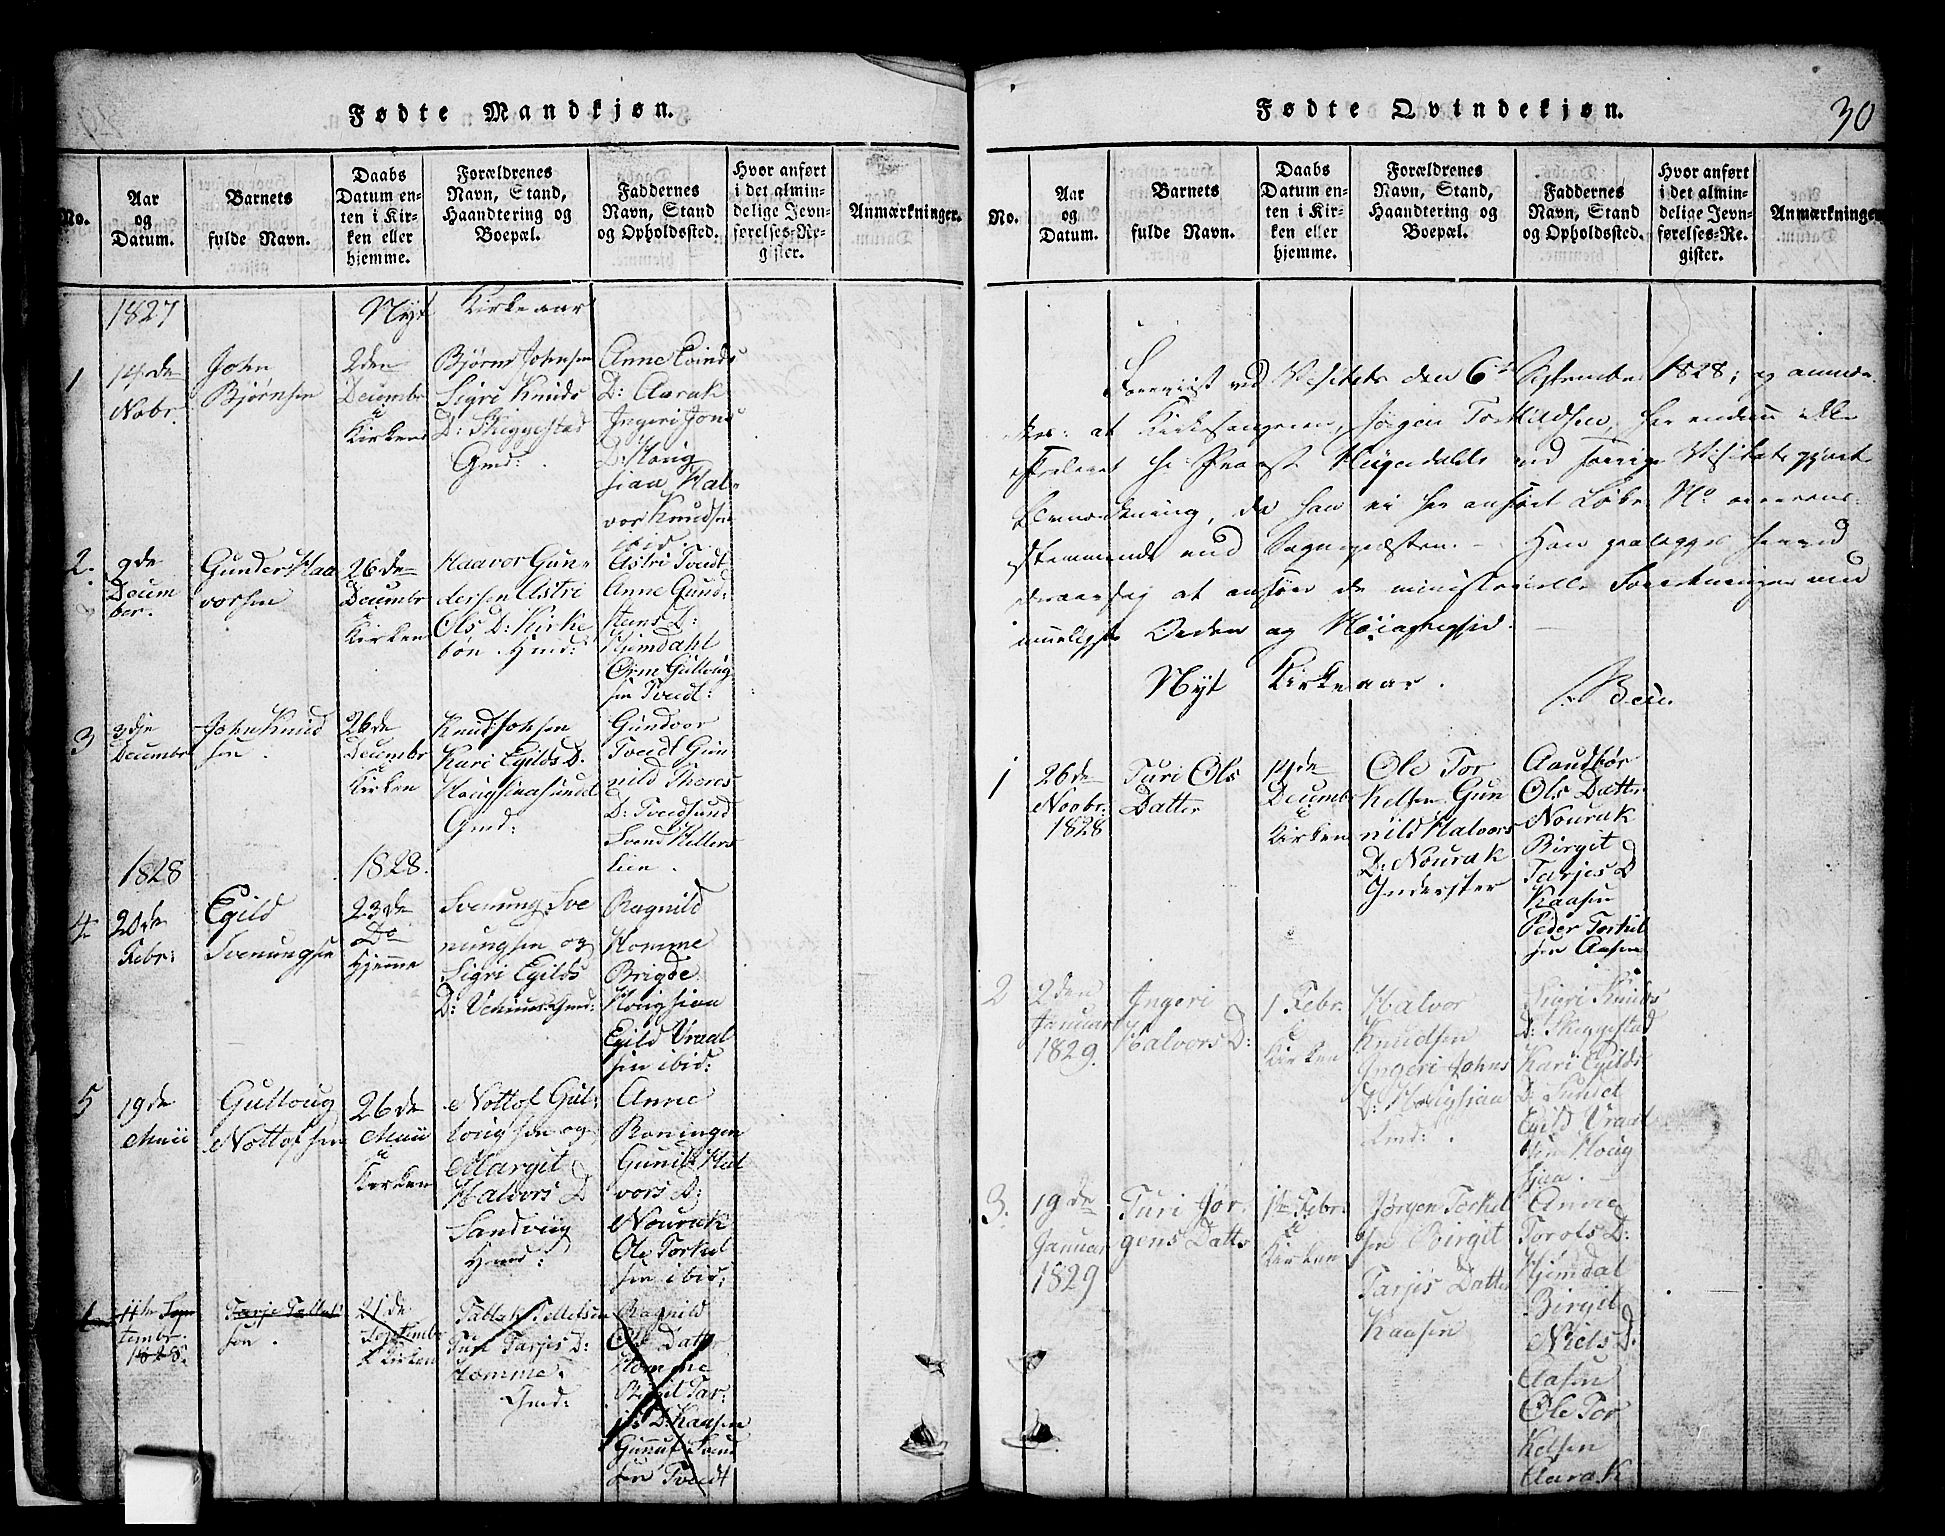 Fødte Mandkjøn.
No.
Aar
og
Datum.
Barnets
fulde Navn.
Daabs
Datum en-
ten i Kir-
ken eller
hjemme.
Forældrenes
Navn, Stand,
Haandtering og
Boepæl.
Faddernes
Navn, Stand
og Opholdssted.
Hvor anført
i det almin-
delige Jevn-
førelses-Re-
gister.
Anmærkninger.
1827
Nyt Kirkeaar
1
14de
Nobr.
John
Bjørnsen
2den
Decembr
i
Kirken
Bjørn Johnsen
Sigri Knuds
D: Skiggestad
Gmd:
Anne Eivinds
D: Aarak
Ingeri Jons
D: Houg
siaa Hal-
vor Knudsen
ibid
2.
9de
Decem
ber.
Gunder Haa
vorsen
26de
Decembr
i
Kirken
Haavor Gun-
dersen Astri
Ols D: Kirke
bøn Hmd:
Astri Tvedt
Anne Gund:
Hans D:
Hjemdahl
Orm Gulloug
sen Tvedt:
3
3die
Decembr
John Knud
sen.
26de
Decembr
i
Kirken
Knud Johsen
Kari Egilds D.
Hougsiaasund
Gmd:
Gundvor
Tvedt Gun
nild Thores
D: Tvedsund
Svend Hellers
lien.
1828
1828.
4
20de
Febr:
Egild
Svenungsen
23de
Do
Hjemme
Svenung Sve
nungsen og
Sigri Egilds
D: Gmd:
Ragnild
Homme
Brigde
Hougsiaa
Egild Vraal
sen ibid:
5
19de
Maii
Gulloug
Nottofsen
26de
Maii
i
Kirken
Nottof Gul-
lougsen og
Margit
Halvors D
Sandviig
Hmd:
Anne
Roningen
Gunild Hal
vors D:
Nourak
Ole Torkel
sen ibid:
1
11te Sep
tembr.
1828.
Tarje Tallefs
sen.
21de
Septembr
i Kirken
Tallef Tellefsen
Turi Tarjes D:
Homme.
Gmd:
Ragnild
Ols Datter
Homme
Birgit Tar-
jes D: Kaasen
Gunuf Svend
sen Tvedt
Fødte Qvindekjøn.
30
No.
Aar
og
Datum.
Barnets
fulde Navn.
Daabs
Datum en-
ten i Kir-
ken eller
hjemme.
Forældrenes
Navn, Stand,
Haandtering og
Boepæl.
Faddernes
Navn, Stand
og Opholdssted.
Hvor anført
i det almin-
delige Jevn-
førelses-Re-
gister.
Anmærkninger
Foreviist ved Visitats den 6te September 1828; og anmær-
kes: at Kirkesangeren, Jørgen Torkildsen, har endnu ikke
efterlevet Hr Provst Heyerdahls ved forrige Visitats gjorte
Bemærkning, da han ei har anført Løbe No overens-
stemmende med Sognepræsten. – Han paalægges herved
alvorlig at anføre de ministerielle Forretninger med
muligste Orden og Nøiagtighed.
Nyt Kirkeaar.
1
26de
Novbr.
1828
Turi Ols
Datter
14de
Decembr
i
Kirken
Ole Tor
kelsen Gun
nild Halvors
D: Nourak
Inderster
Aaudbør
Ols Datter
Nourak
Birgit
Tarjes D
Kaasen
Peder Torkel
sen Aasen
2
2den
Januari
1829.
Ingeri
Halvors D:
1 Febr.
i
Kirken
Halvor
Knudsen
Ingeri Johns
D: Hougsiaa
Gmd:
Sigri Knuds
D: Skiggestad
Kari Egilds
D: Sundet
Egild Vraal
sen Houg
sjaa.
3.
19de
Januar
1829
Turi Jør
gens Datter
1te Febr.
i
Kirken
Jørgen Torkel
sen Birgit
Tarjes Datter
Kaasen
Anne
Torols D:
Hjemdal
Birgit
Niels D.
Aasen
Ole Tor
kelsen
Aarak